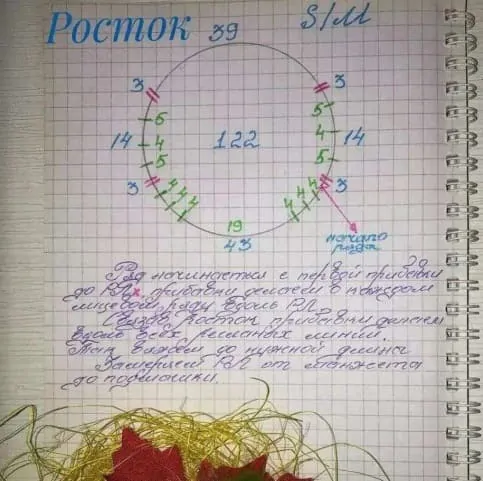 Росток 39 S/M
3 3
6 5
14 4 122 4 14
5 5
3 3
4 4 4 4 4 4
19
43
начало
ряда
Ряд начинается с первой прибавки
до РЛ, прибавки делаем в каждом
лицевом ряду вдоль РЛ.
Связав росток прибавки делаем
вдоль всех регланных линий.
Так вяжем до нужной длины
Замеряем РЛ от манжета
до подмышки.